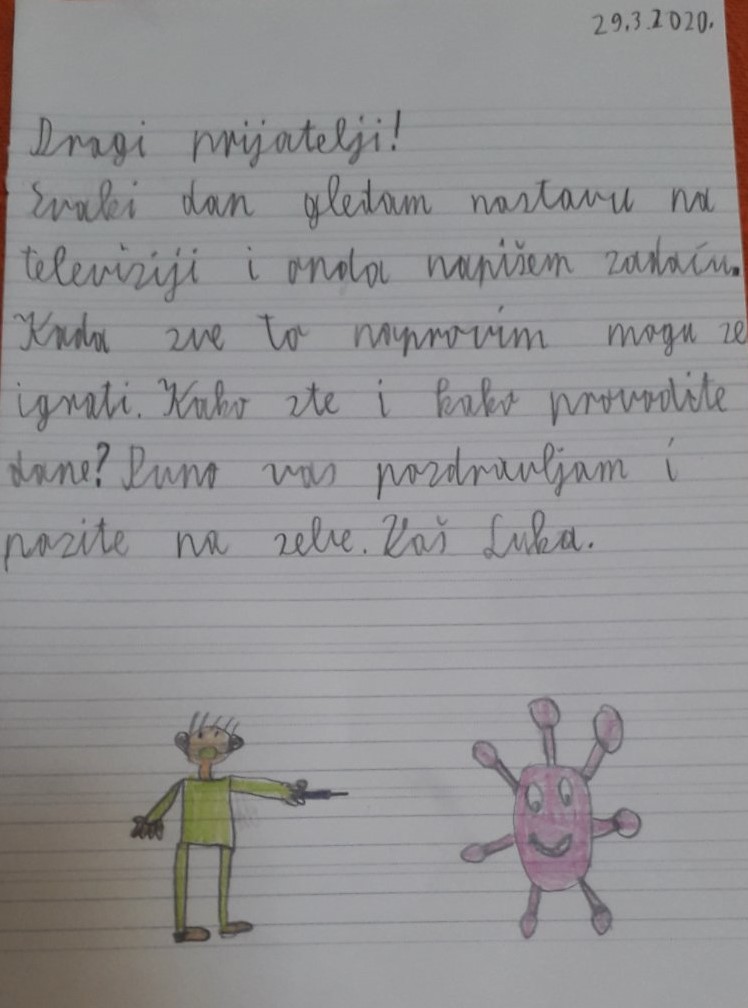 29.3.2020.
Dragi prijatelji!
Svaki dan gledam nastavu na
televiziji i onda napišem zadaću.
Kada sve to napravim mogu se
igrati. Kako ste i kako provodite
dane? Puno vas pozdravljam i
pazite na sebe. Vaš Luka.